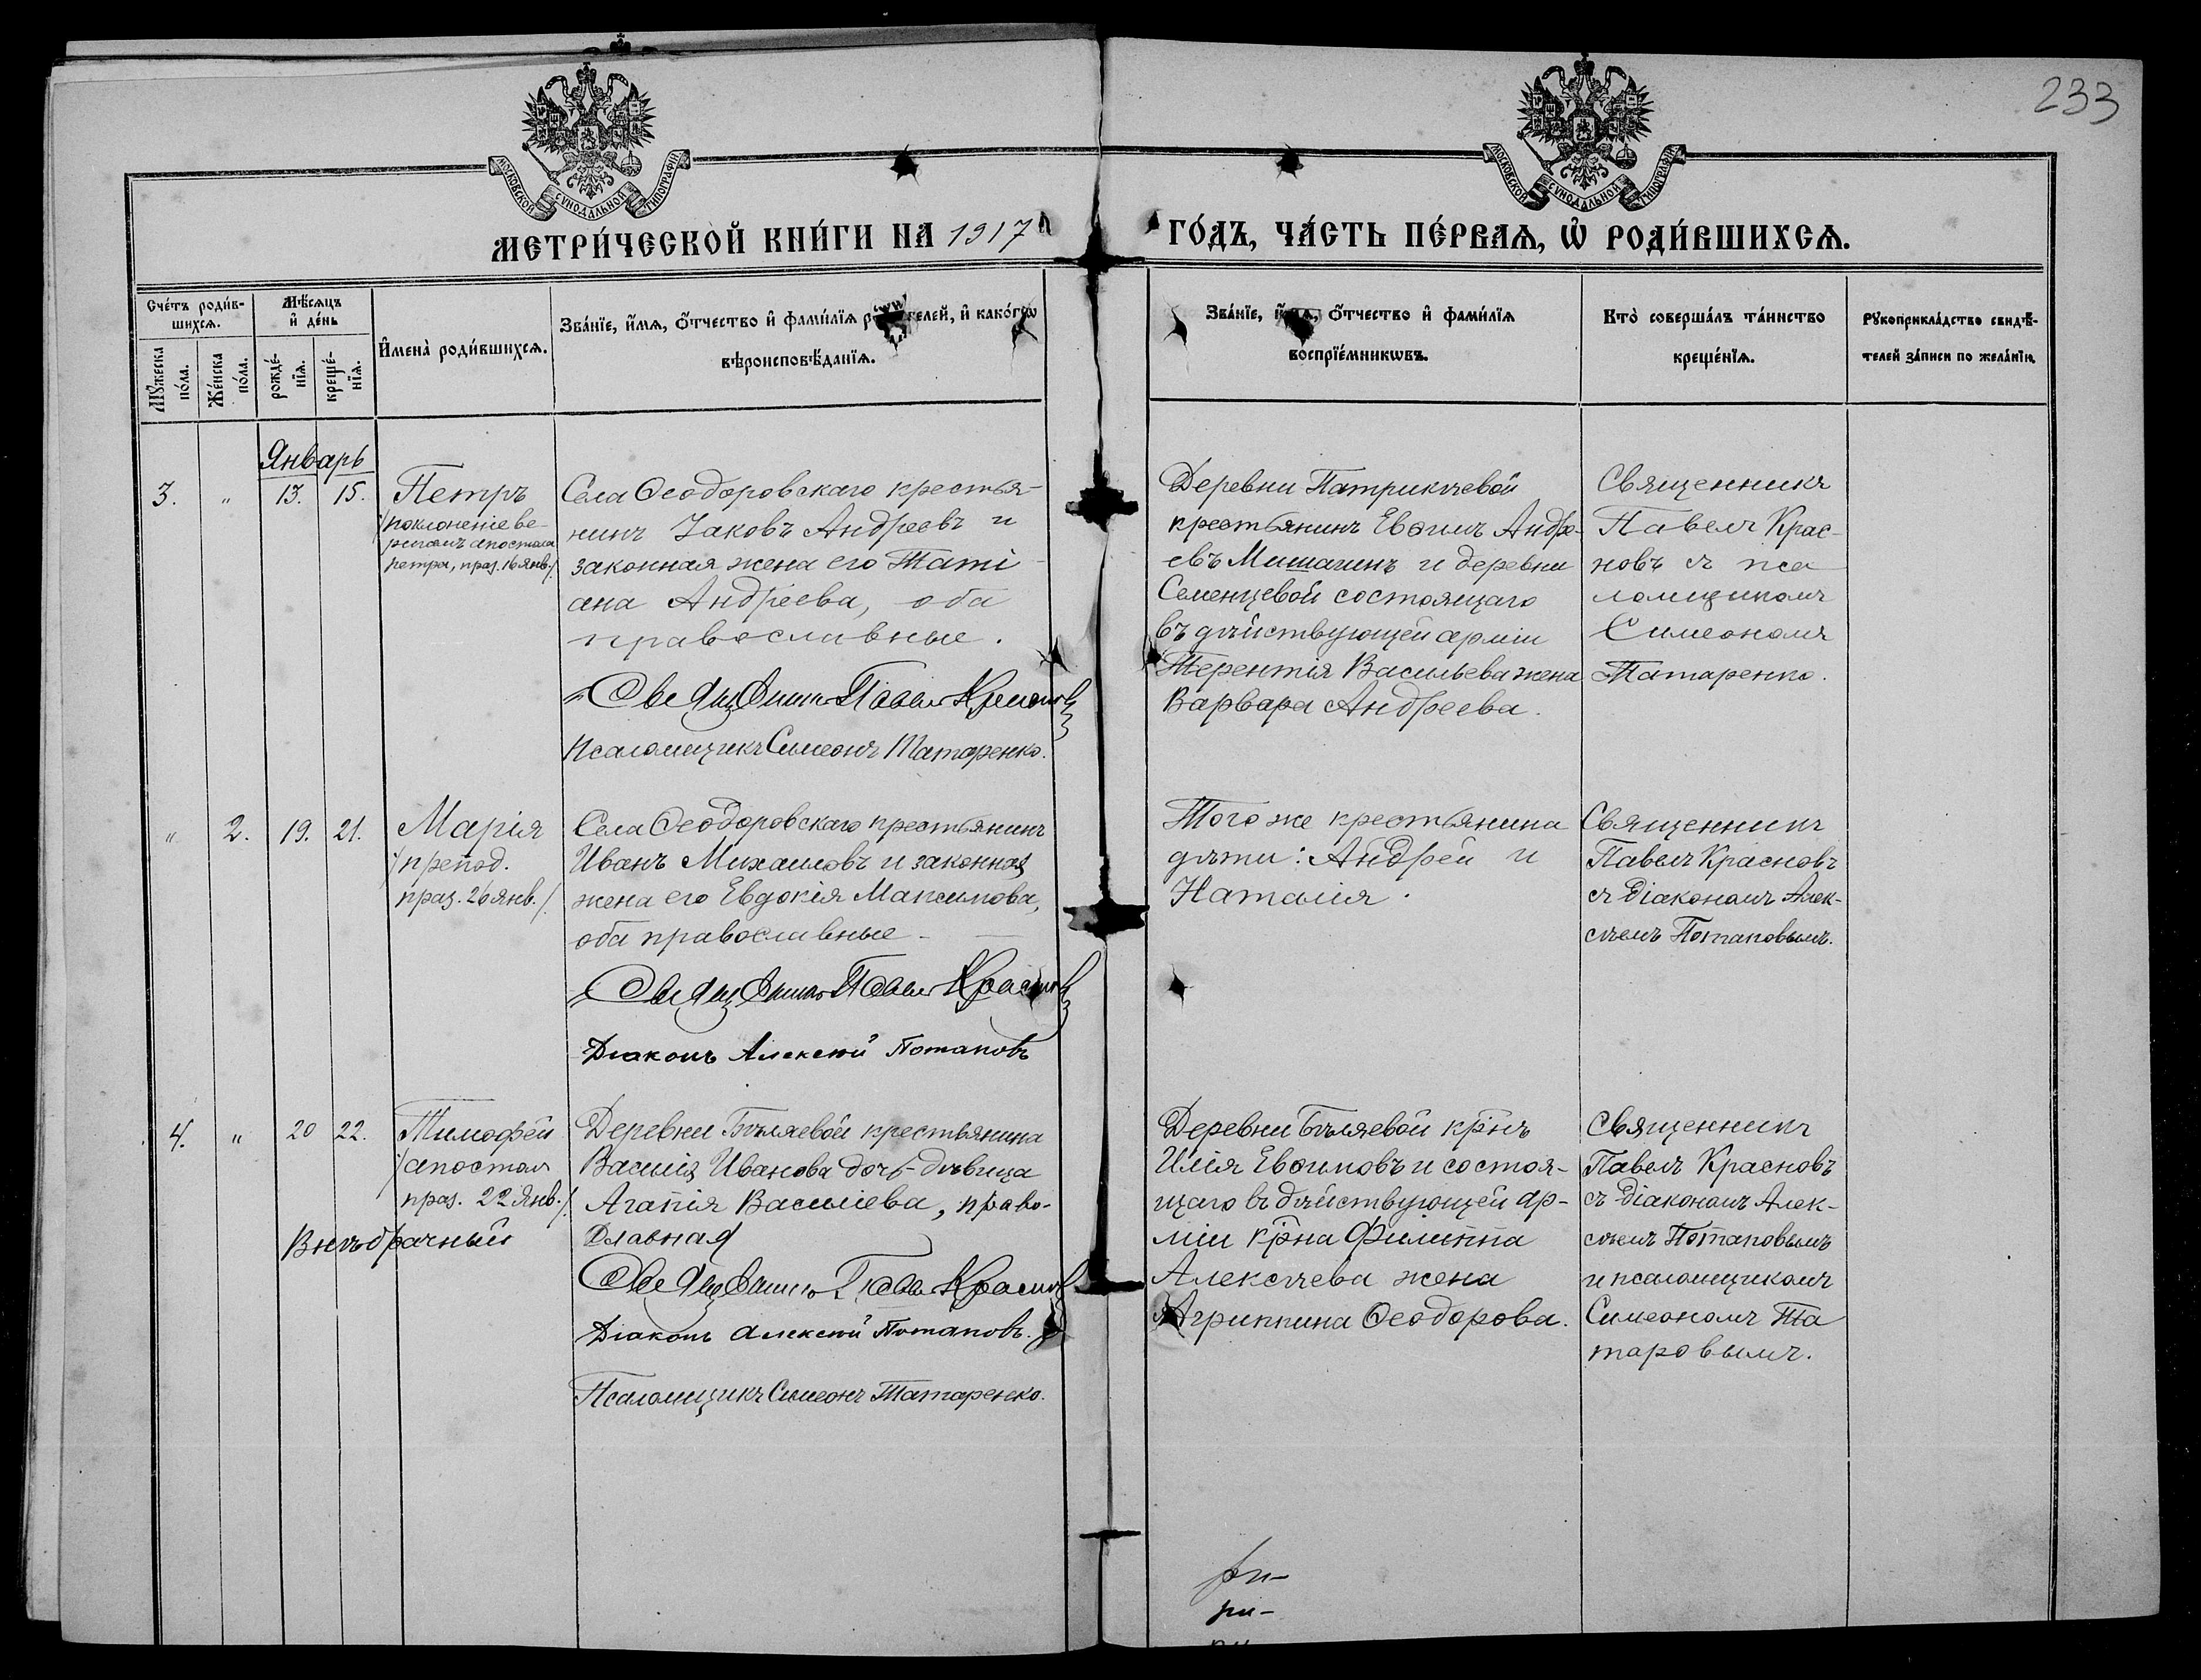 233
МОСКОВСКОЙ СѴНОДАЛЬНОЙ ТИПОГРАФІИ
МОСКОВСКОЙ СѴНОДАЛЬНОЙ ТИПОГРАФІИ
МЕТРИ́ЧЕСКОЙ КНИ́ГИ НА 1917
ГО́ДЪ, ЧА́СТЬ ПЕ́РВАѦ, Ѡ҆ РОДИ́ВШИХСѦ.
Сче́тъ роди́в-
шихсѧ.
Мѣ́сѧцъ
и҆ де́нь
Мꙋ́жеска
по́ла.
Же́нска
по́ла.
рожде́-
нїѧ.
креще́-
нїѧ.
И҆мена̀ роди́вшихсѧ.
Зва́нїе, и҆́мѧ, ѻ҆́тчество и҆ фами́лїѧ роди́телей, и҆ како́гѡ
вѣроисповѣ́данїѧ.
Зва́нїе, и҆́мѧ, ѻ҆́тчество и҆ фами́лїѧ
воспрїе́мникѡвъ.
Кто̀ соверша́лъ та́инство
креще́нїѧ.
Рꙋкоприкла́дство свидѣ́-
телей за́писи по жела́нїю.
Январь
3. " 13. 15.
Петръ
/поклоненіе ве-
ригамъ апостола
Петра, праз. 16 янв./
Села Ѳеодоровскаго крестья-
нинъ Іаковъ Андреевъ и
законная жена его Таті-
ана Андреева, оба
православные.
Священникъ Павелъ Красновъ
Псаломщикъ Симеонъ Татаренко.
Деревни Патрикѣевой
крестьянинъ Евѳимъ Андре-
евъ Мишагинъ и деревни
Семенцевой состоящаго
въ дѣйствующей арміи
Терентія Васильева жена
Варвара Андреева.
Священникъ
Павелъ Крас-
новъ съ пса
ломщикомъ
Симеономъ
Татаренко.
" 2. 19. 21.
Марія
/препод.
праз. 26 янв./
Села Ѳеодоровскаго крестьянинъ
Иванъ Михаиловъ и законная
жена его Евдокія Максимова,
оба православные.
Священникъ Павелъ Красновъ
Діаконъ Алексій Потаповъ
Того же крестьянина
дѣти: Андрей и
Наталія.
Священникъ
Павелъ Красновъ
съ діакономъ Алек-
сѣемъ Потаповымъ.
4. " 20 22.
Тимофей
/апостолъ
праз. 22 янв./
Внѣбрачный
Деревни Бѣляевой крестьянина
Василія Иванова дочь-дѣвица
Агапія Василіева, право-
славная
Священникъ Павелъ Красновъ
Діаконъ Алексій Потаповъ.
Псаломщикъ Симеонъ Татаренко.
Деревни Бѣляевой кр̃нъ
Илія Евѳимовъ и состоя-
щаго въ дѣйствующей ар-
міи кр̃на Филиппа
Алексѣева жена
Агриппина Ѳеодорова.
Священникъ
Павелъ Красновъ
съ діакономъ Алек-
сѣемъ Потаповымъ
и псаломщикомъ
Симеономъ Та
таровымъ.
ри-
ри-